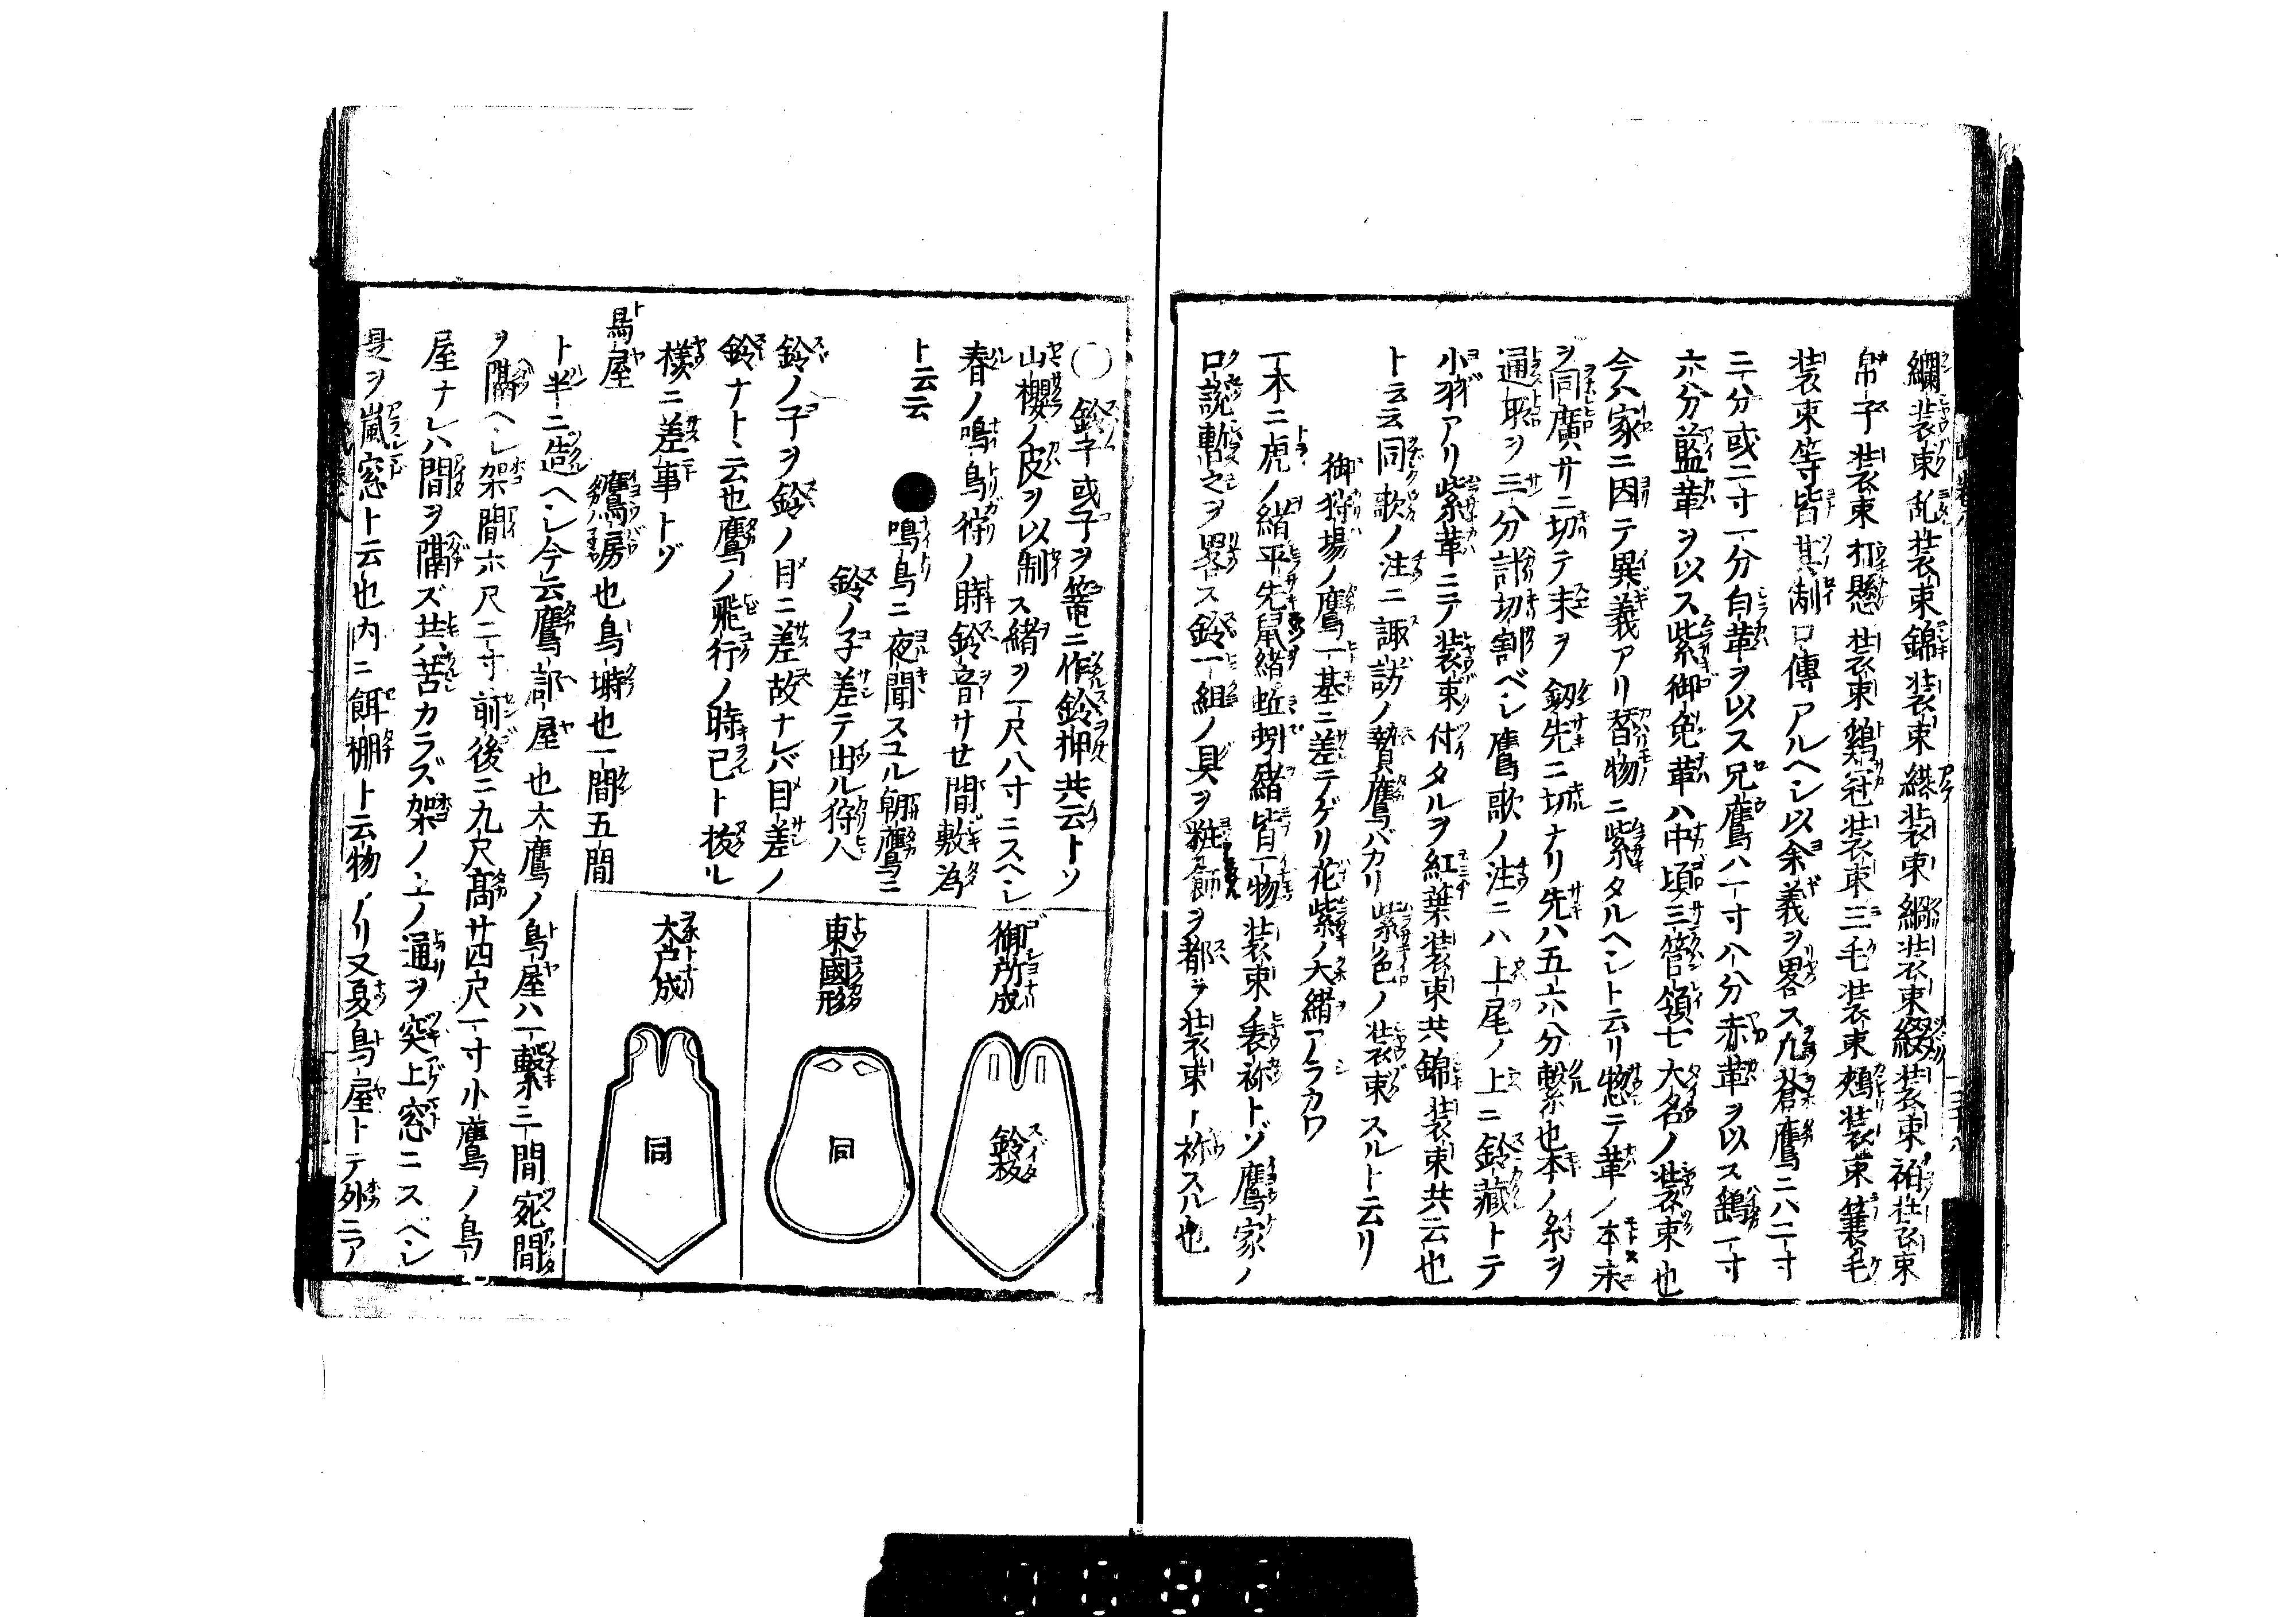 装束乱装束錦装束綟装束綱装束綴装束袙装束
帛子装束打懸装束鷄冠装束三毛装束鵐装束簑毛
装束等皆其制口傳アルヘシ以余義ヲ畧ス九蒼鷹ニハ二寸
三分或二寸一分白革ヲ以ス兄鷹ハ一寸八分赤革ヲ以ス鷂一寸
六分藍革ヲ以ス紫御免革ハ中頃三管領七大名ノ装束也
今ハ家ニ因テ異義アリ替物ニ紫タルヘシト云リ惣テ革ノ本末
ヲ同廣サニ切テ末ヲ釼先ニ切ナリ先ハ五六分繋也本ノ糸ヲ
通取ヲ三分計切割ベシ鷹歌ノ注ニハ上尾ノ上ニ鈴藏トテ
小羽アリ紫革ニテ装束付タルヲ紅葉装束共錦装束共云也
ト云云同歌ノ注ニ諏訪ノ贄鷹バカリ紫色ノ装束スルト云リ
御狩場ノ鷹一基ニ差テゲリ花紫ノ大緒アラカワ
一本ニ虎ノ緒平先鼠緒蚯蚓緒皆一物装束ノ裹祢トゾ鷹家ノ
口説暫之ヲ畧ス鈴一組ノ具ヲ粧飾ヲ都テ装束祢スル也
○鈴子或子ヲ篭ニ作鈴押共云トソ
山櫻ノ皮ヲ以制ス緒ヲ一尺八寸ニスヘシ
春ノ鳴鳥狩ノ時鈴音サセ間敷為
ト云云 ●鳴鳥ニ夜聞スユル朝鷹ニ
鈴ノ子差テ出ル狩人
鈴ノ子ヲ鈴ノ目ニ差故ナレバ目差ノ
鈴ナト云也鷹ノ飛行ノ時己ト抜ル
様ニ差事トゾ
御所成
鈴板
東國形
同
大凸成
同
鳥屋 鷹房也鳥塒也一間五間
ト半ニ造ヘシ今云鷹部屋也大鷹ノ鳥屋ハ一繋三間宛間
ヲ隔ヘシ架間六尺二寸前後ニ九尺高サ四尺一寸小鷹ノ鳥
屋ナレハ間ヲ隔ズ共苦カラズ架ノ上ノ通ヲ突上窓ニスベシ
是ヲ嵐窓ト云也内ニ餌棚ト云物アリ又夏鳥屋トテ外ニア